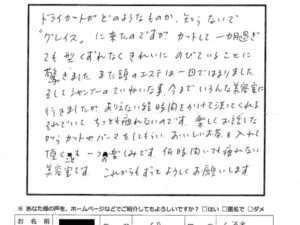 ドライカットがどのようなものか、知らないで
"グレイス"に来たのですが カットして一カ月過ぎ
ても型くずれなくきれいにのびていることに
驚きました また頭のエステは一回ではまりました
そしてシャンプーのていねいな事、今までいろんな美容室に
行きましたが、ありえない位時間をかけて洗ってくれる
それでいて もっとも疲れないのです 楽しくお話した
カットやパーマをしてもらい おいしいお茶を入れて
頂く も 一つの楽しみです 何時間いても疲れない
美容室です これからもずっとよろしくお願いします
※ あなた様の声を、ホームページなどでご紹介してもよろしいですか？ □はい □匿名で □ダメ
お 名 前